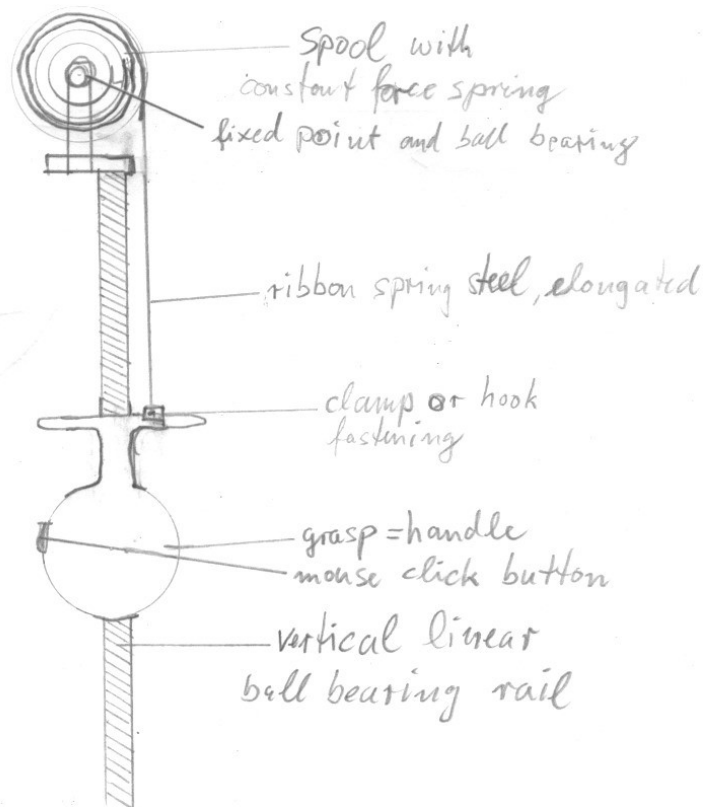 Spool with
constant force spring
fixed point and ball bearing
ribbon spring steel, elongated
clamp or hook
fastening
grasp = handle
mouse click button
vertical linear
ball bearing rail